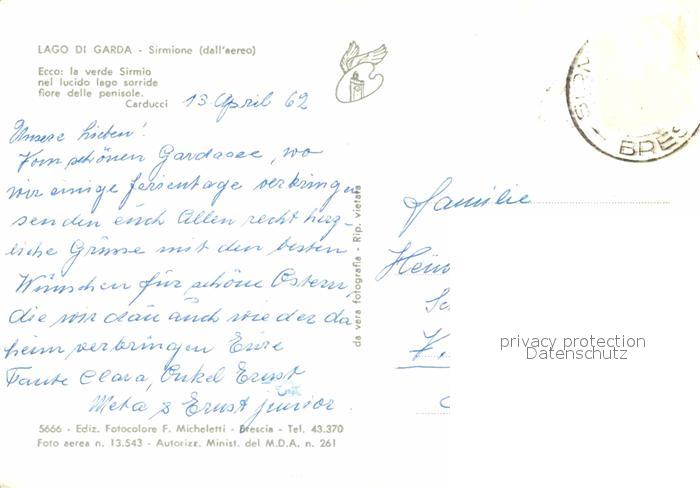 LAGO DI GARDA - Sirmione (dall'aereo)
Ecco: la verde Sirmio
nel lucido lago sorride
fiore delle penisole.
Carducci
13 April 62
Unsere Lieben!
Vom schönen Gardasee, wo
wir einige Ferientage verbringen
senden euch Allen recht herz-
liche Grüsse mit den besten
Wünschen für schöne Ostern,
die wir dan auch wieder da
heim verbringen Eure
Tante Clara, Onkel Ernst
Meta & Ernst junior.
5666 - Ediz. Fotocolore F. Micheletti - Brescia - Tel. 43.370
Foto aerea n. 13.543 - Autorizz. Minist. del M.D.A. n. 261
da vera fotografia - Rip. vietata
BRES
Familie
privacy protection
Datenschutz